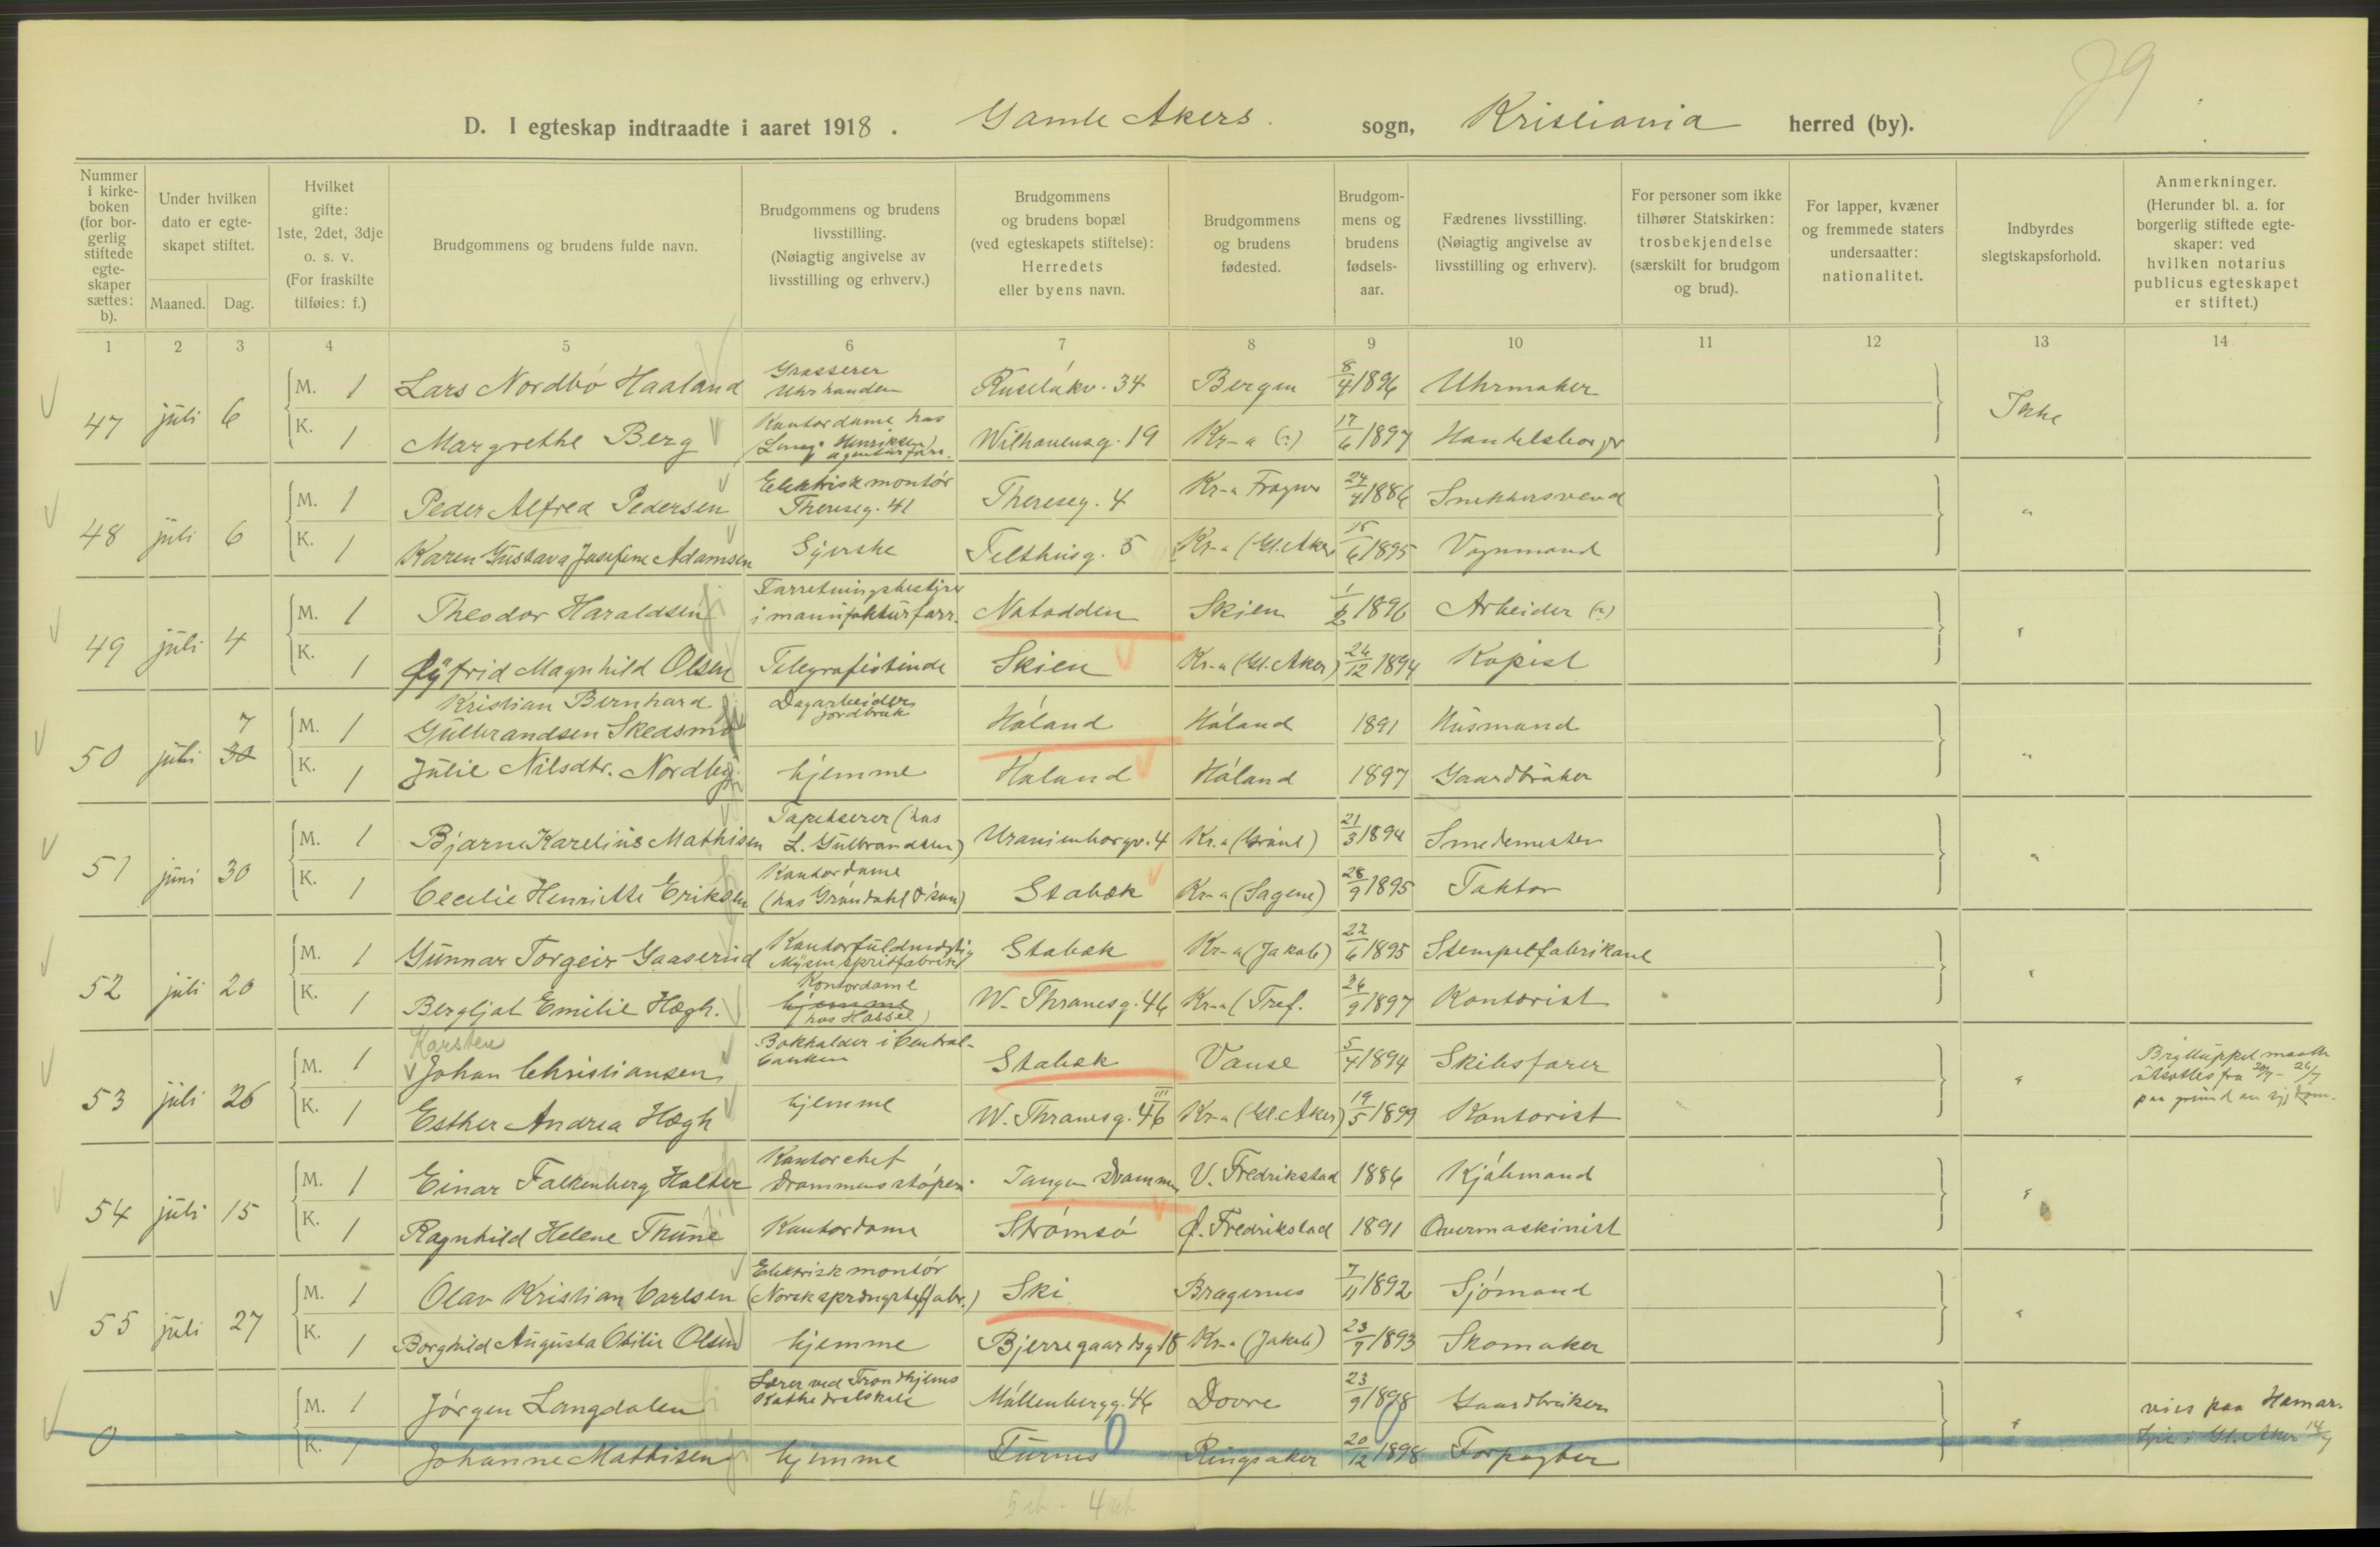 79
D. I egteskap indtraadte i aaret 1918. Gamle Akers sogn, Kristiania herred (by).
Nummer i kirkeboken (for borgerlig stiftede egteskaper sættes: b).
Under hvilken dato er egteskapet stiftet.
Maaned. Dag.
Hvilket gifte: 1ste, 2det, 3dje o. s. v. (For fraskilte tilføies: f.)
Brudgommens og brudens fulde navn.
Brudgommens og brudens livsstilling. (Nøiagtig angivelse av livsstilling og erhverv.)
Brudgommens og brudens bopæl (ved egteskapets stiftelse): Herredets eller byens navn.
Brudgommens og brudens fødested.
Brudgommens og brudens fødselsaar.
Fædrenes livsstilling. (Nøiagtig angivelse av livsstilling og erhverv).
For personer som ikke tilhører Statskirken: trosbekjendelse (særskilt for brudgom og brud).
For lapper, kvæner og fremmede staters undersaatter: nationalitet.
Indbyrdes slegtskapsforhold.
Anmerkninger. (Herunder bl. a. for borgerlig stiftede egteskaper: ved hvilken notarius publicus egteskapet er stiftet.)
1 2 3 4 5 6 7 8 9 10 11 12 13 14
47 juli 6 M. 1 Lars Nordbó Haaland Grosserer Uhrhanden Ruselökv. 34 Bergen 8/4 1896 Uhrmaker Ikke
K. 1 Margrethe Berg Kontordame hos Henriksen agenturforr. Wilhausensg. 19 Kr-a (?) 17/6 1897 Handelsborger
48 juli 6 M. 1 Peder Alfred Pedersen Elektrisk montör Thereseg. 41 Thereseg. 4 Kr-a Fragner 24/4 1886 Snekkersvend "
K. 1 Karen Gustava Josefine Adamsen Syerske Telthusg. 5 Kr-a (Gl. Aker 15/6 1895 Vognmand
49 juli 4 M. 1 Theodor Haraldsen Forretningsbestyrer i manufakturforr. Notodden Skien 1/6 1896 Arbeider (?) "
K. 1 Öyfrid Magnhild Olsen Telegrafistinde Skien Kr-a (Gl. Aker) 24/12 1894 Kopist
50 juli 7 30 M. 1 Kristian Bernhard Gulbrandsen Skedsmo Dagarbeider jordbruk Höland Höland 1891 Husmand "
K. 1 Julie Nilsdtr. Nordby hjemme Höland Höland 1897 Gaardbruker
51 juni 30 M. 1 Bjarne Karelius Mathisen Tapetserer (hos L. Gulbrandsen) Uranienborgv. 4 Kr.a (Grönl) 21/3 1894 Smedemester "
K. 1 Cecilie Henriette Eriksen Kontordame (hos Gröndahl & sön) Stabæk Kr-a (Sagene) 28/9 1895 Faktor
52 juli 20 M. 1 Gunnar Torgeir Gaaserud Kontorfuldmægtig Mysen spritfabrik Stabæk Kr-a (Jakob) 22/6 1895 Stempelfabrikant "
K. 1 Bergljot Emilie Hægh. Kontordame hjemme hos Hassel) W. Thranesg. 46 Kr-a (Tref. 26/9 1897 Kontorist
53 juli 26 M. 1 Karsten Johan Christiansen Bokholder i Centralbanken Stabæk Vanse 5/4 1894 Skibsfører " Brylluppet maatte utsættes fra 20/7 - 26/7 paa grund av sykdom.
K. 1 Esther Andrea Hægh hjemme W. Thranesg. 46 III Kr-a (Gl. Aker) 19/5 1899 Kontorist
54 juli 15 M. 1 Einar Falkenberg Halter Kontorchef Drammens stöperi Tangen Drammen V. Fredrikstad 1886 Kjöbmand "
K. 1 Ragnhild Helene Thune Kontordame Strömsö Ö. Fredrikstad 1891 Overmaskinist
55 juli 27 M. 1 Olav Kristian Carlsen Elektrisk montör (Norsk sprængstoffabr.) Ski Bragernes 7/11 1892 Sjömand "
K. 1 Borghild Augusta Otilie Olsen hjemme Bjerregaardsg 18 Kr-a (Jakob) 23/9 1893 Skomaker
0 - - M. 1 Jörgen Langdalen Lærer ved Trondhjems Kathedralskole Möllenbergg. 46 Dovre 23/9 1898 Gaardbruker " vies paa Hamar.
K. 1 Johanne Mathisen hjemme Furnes Ringsaker 20/12 1898 Forpagter Lyst i Gl. Aker 14/7